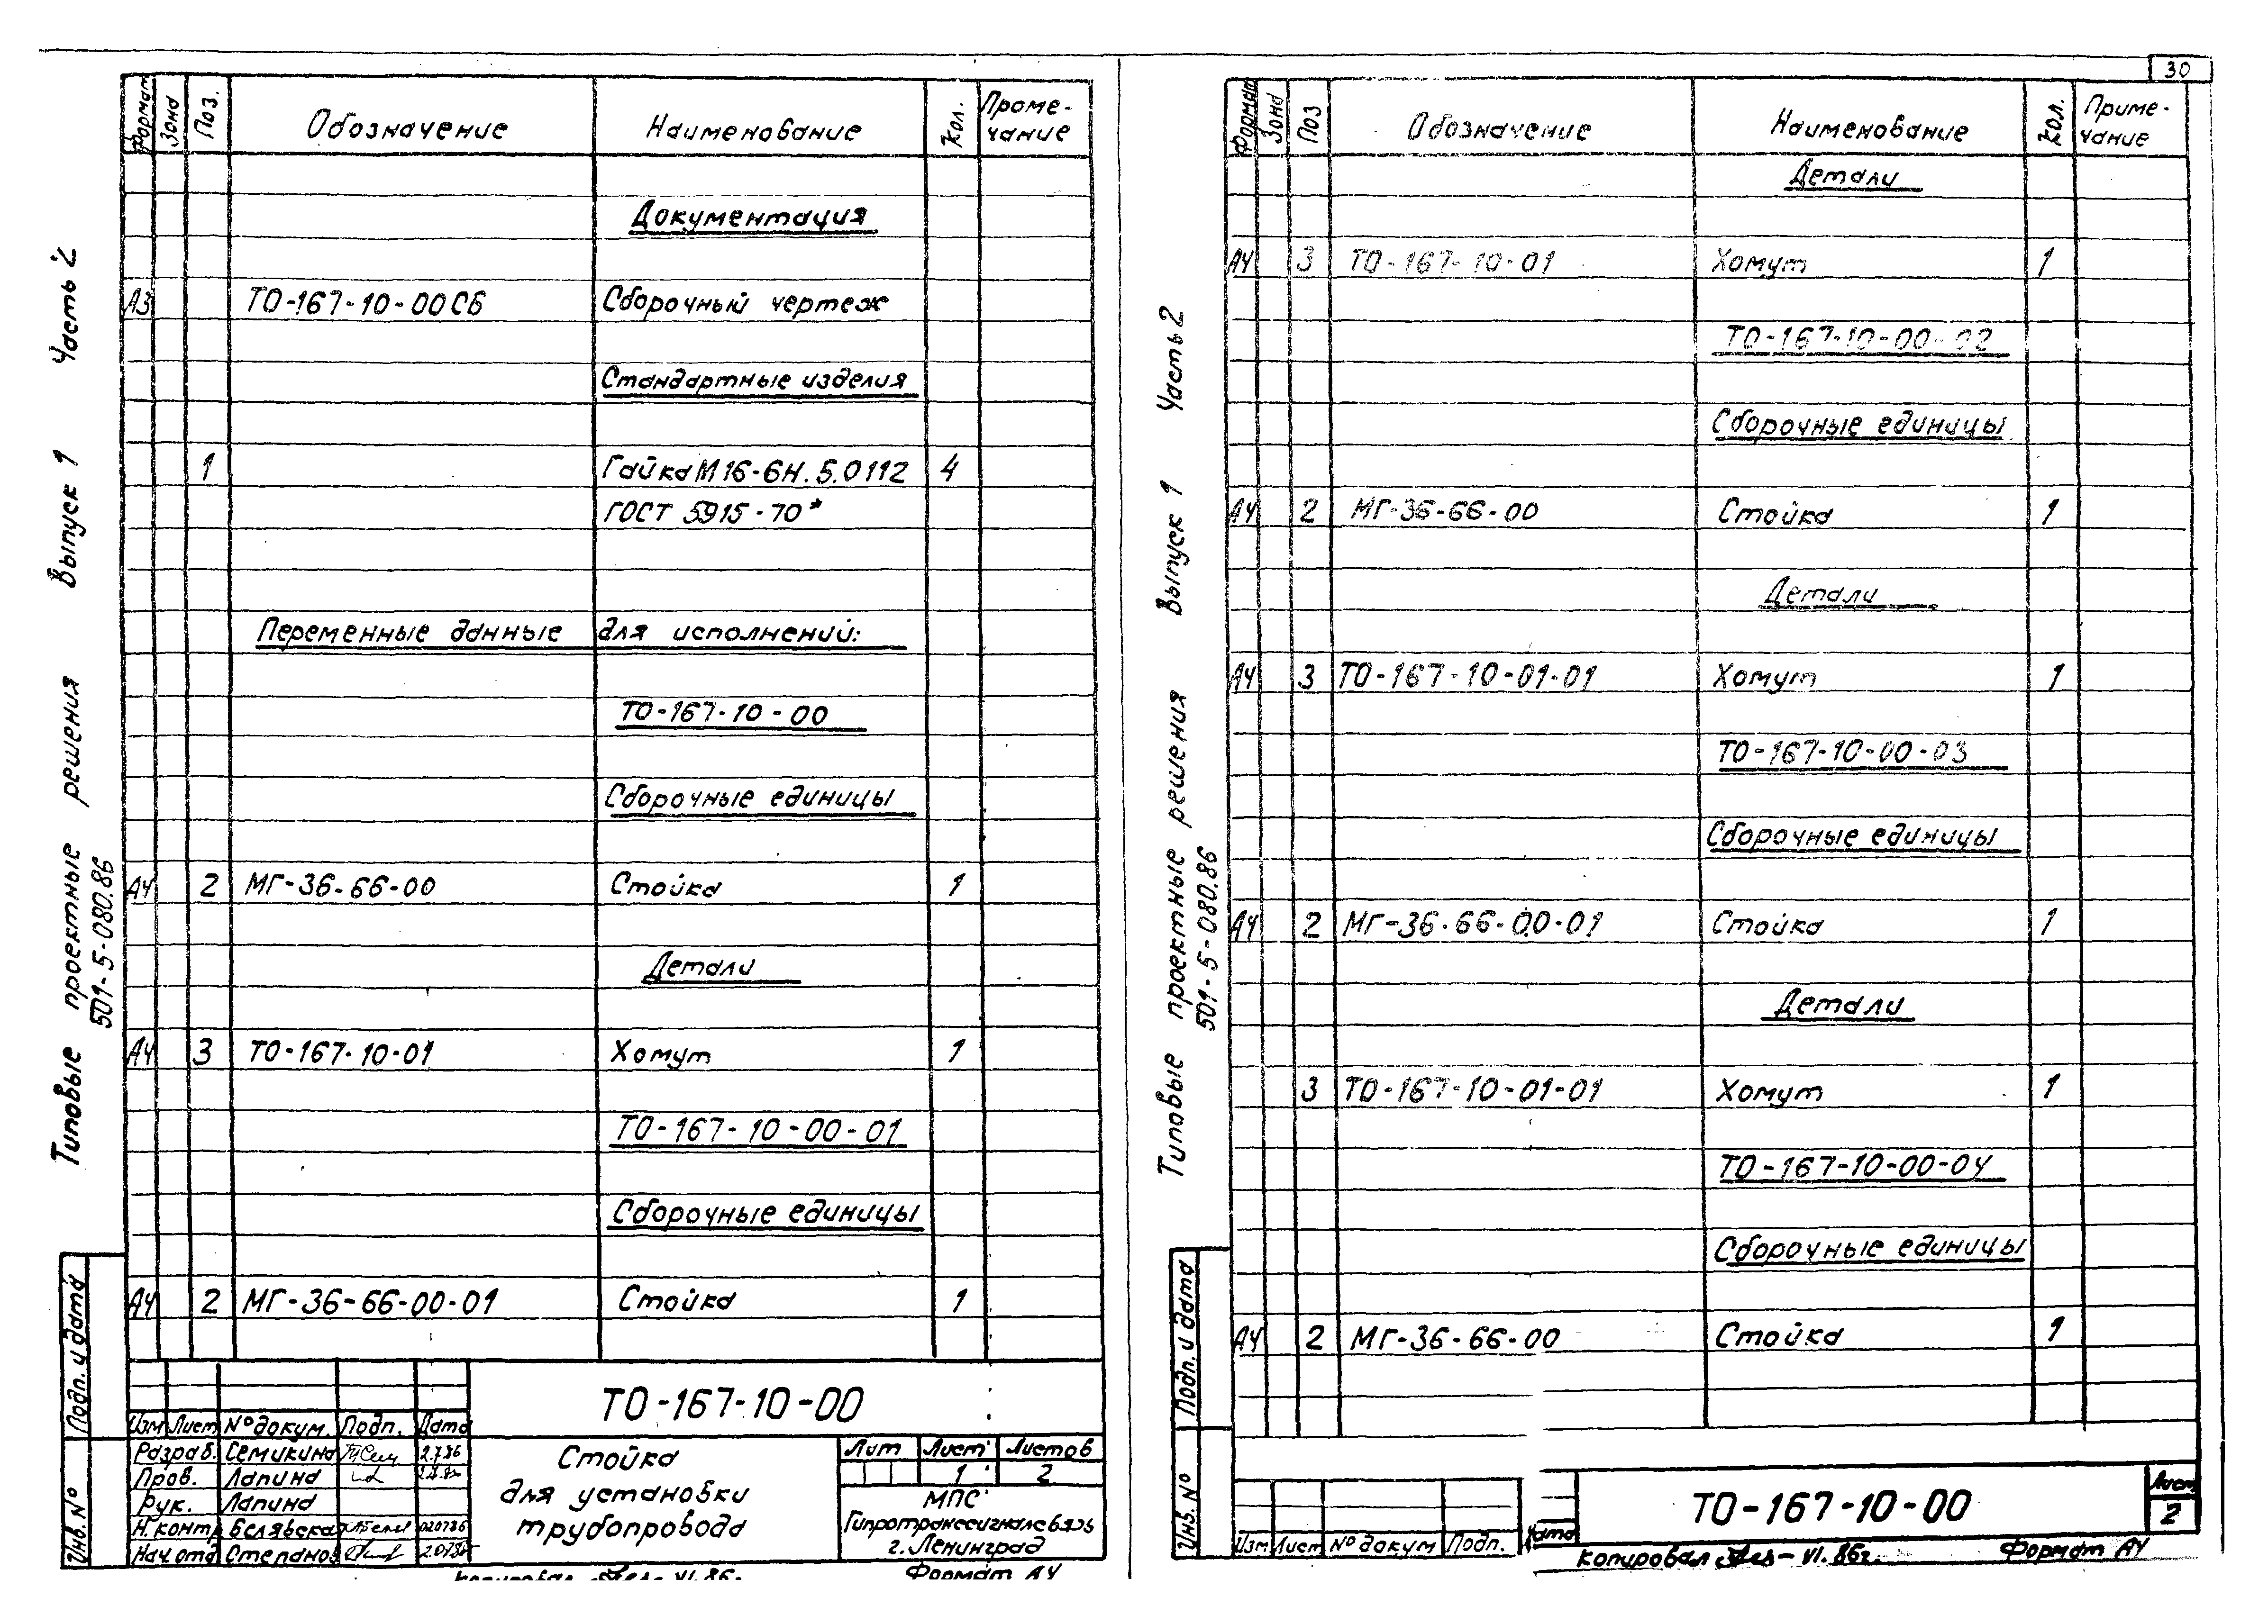 30
Типовые проектные решения Выпуск 1 Часть 2
501-5-080.86
Формат Зона Поз. Обозначение Наименование Кол. Приме-
чание
Документация
А3 ТО-167-10-00СБ Сборочный чертеж
Стандартные изделия
1 Гайка М16-6Н.5.0112 4
ГОСТ 5915-70*
Переменные данные для исполнений:
ТО-167-10-00
Сборочные единицы
А4 2 МГ-36-66-00 Стойка 1
Детали
А4 3 ТО-167-10-01 Хомут 1
ТО-167-10-00-01
Сборочные единицы
А4 2 МГ-36-66-00-01 Стойка 1
Подп. и дата
Инв. №
ТО-167-10-00
Изм Лист № докум. Подп. Дата
Разраб. Семикина 2.7.86
Пров. Лапина
Рук. Лапина
Н.контр Белявска 020786
Нач.отд Степанов
Стойка
для установки
трубопровода
Лит Лист Листов
1 2
МПС
Гипротранссигналсвязь
г. Ленинград
Копировал VI.86г. Формат А4
Типовые проектные решения Выпуск 1 Часть 2
501-5-080.86
Формат Зона Поз Обозначение Наименование Кол. Приме-
чание
Детали
А4 3 ТО-167-10-01 Хомут 1
ТО-167-10-00-02
Сборочные единицы
А4 2 МГ-36-66-00 Стойка 1
Детали
А4 3 ТО-167-10-01-01 Хомут 1
ТО-167-10-00-03
Сборочные единицы
А4 2 МГ-36-66-00-01 Стойка 1
Детали
3 ТО-167-10-01-01 Хомут 1
ТО-167-10-00-04
Сборочные единицы
А4 2 МГ-36-66-00 Стойка 1
Подп. и дата
Инв. №
Изм Лист № докум Подп. Дата
ТО-167-10-00
Лист
2
Копировал VI.86г. Формат А4